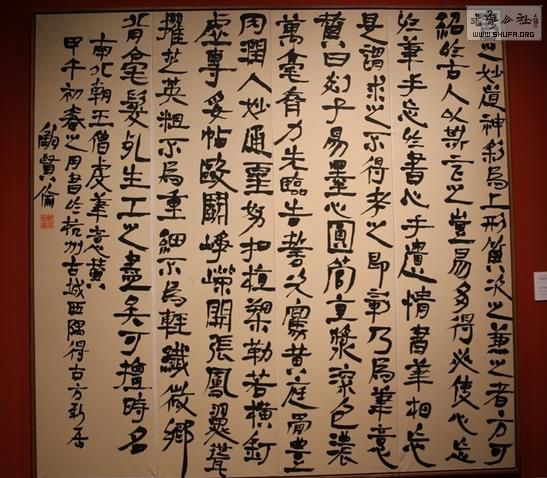 之妙道神彩為上形質次之兼之者方可
紹於古人以斯言之豈易多得必使心忘
於筆手忘於書心手遺情書筆相忘
是謂求之不得考之即彰乃為筆意
贊曰剡易墨心圓管直漿深色濃
萬毫齊力先臨告誓次寫黃庭骨豐
肉潤入妙通靈努如植槊勒若橫釘
虛專妥帖毆鬭崢嶸開張鳳翼聳
擢芝英粗不為重細不為輕纖微鄉
背毫髮死生工之盡矣可擅時名
南北朝王僧虔筆意贊
甲午初春之月書於杭州古城西隅得古方新居
鮑賢倫
公社
WWW.SHUFA.ORG